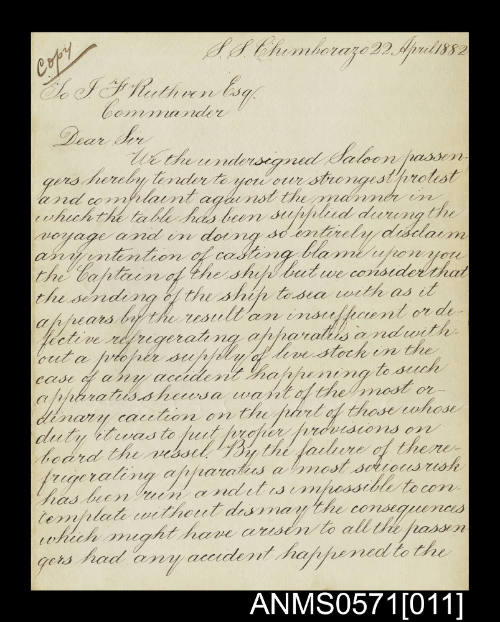 Copy
S. S. Chimborazo 22 April 1882
To J. F. Ruthven Esq.
Commander
Dear Sir
We the undersigned Saloon passen-
gers hereby tender to you our strongest protest
and complaint against the manner in
which the table has been supplied during the
voyage and in doing so entirely disclaim
any intention of casting blame upon you
the Captain of the ship but we consider that
the sending of the ship to sea with as it
appears by the result an insufficient or de-
fective refrigerating apparatus and with-
out a proper supply of live stock in the
case of any accident happening to such
apparatus shews a want of the most or-
dinary caution on the part of those whose
duty it was to put proper provisions on
board the vessel. By the failure of the re-
frigerating apparatus a most serious risk
has been run and it is impossible to con-
template without dismay the consequences
which might have arisen to all the passen
gers had any accident happened to the
ANMS0571[011]